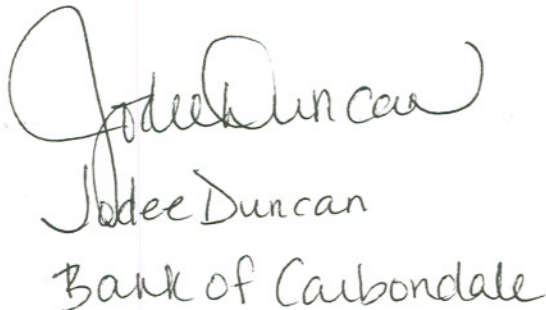 Jodee Duncan
Jodee Duncan
Bank of Carbondale